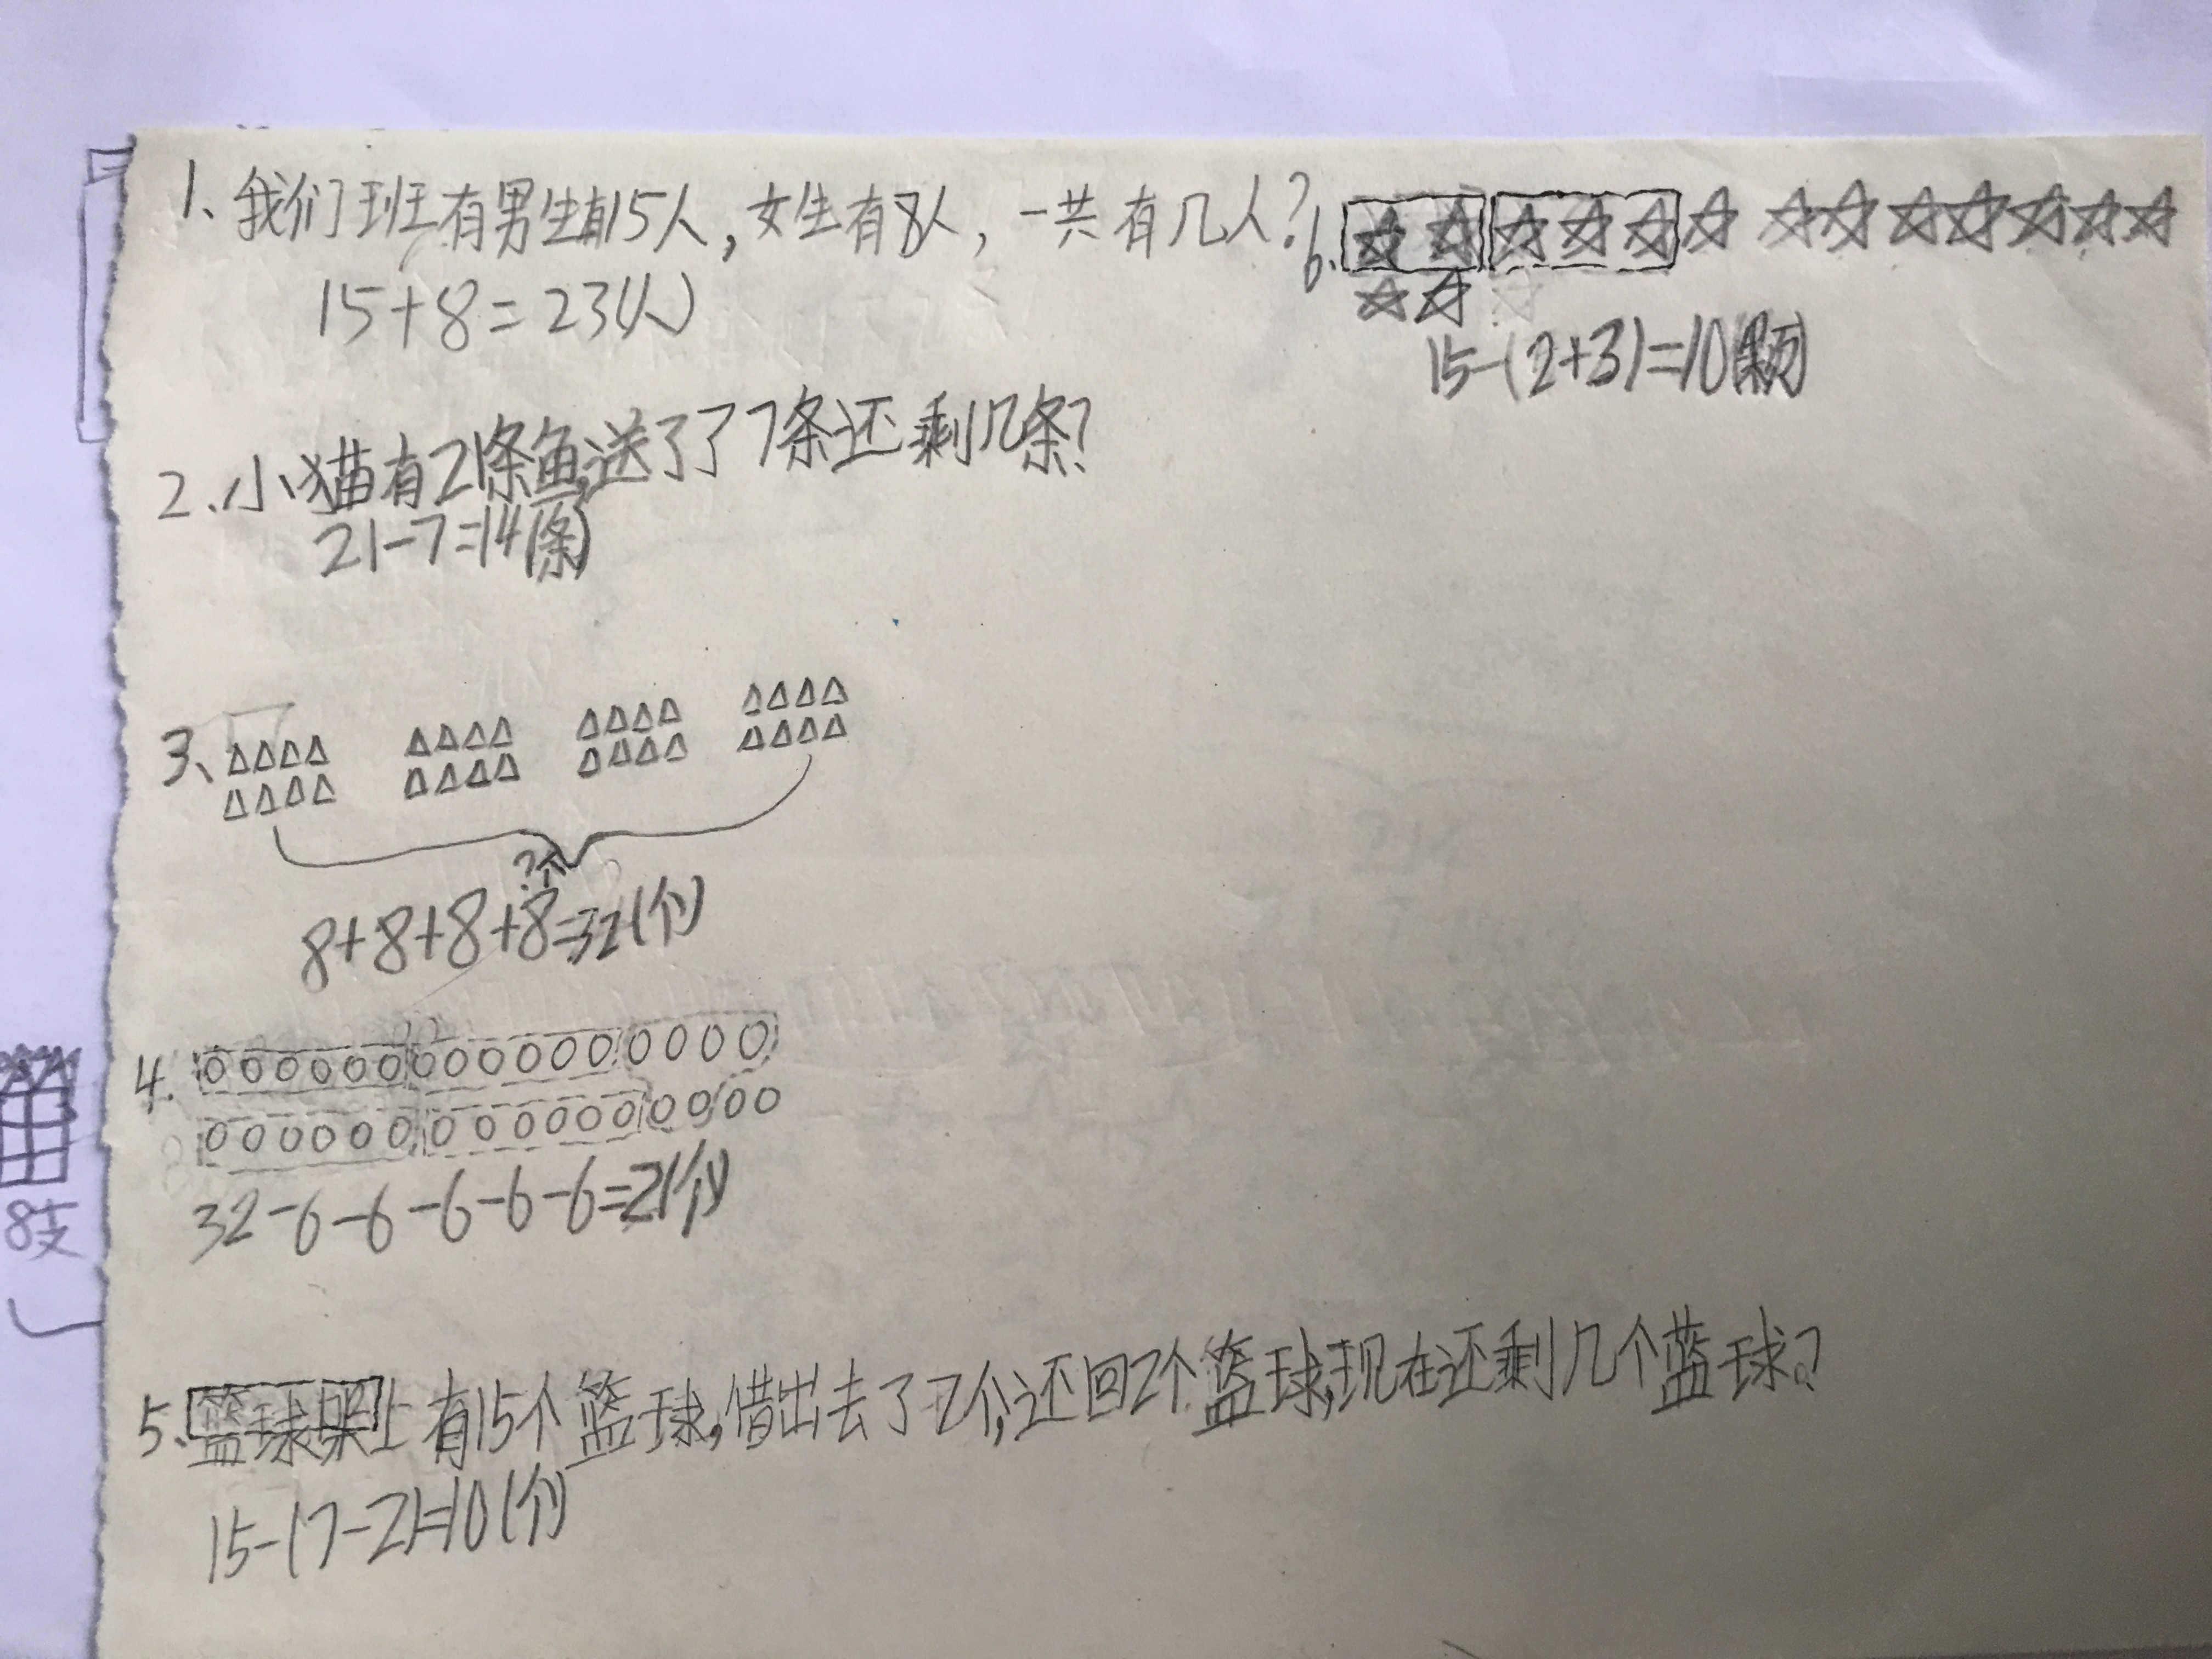 1、我们班有男生有15人，女生有8人，一共有几人？
15+8=23(人)
2、小猫有21条鱼，送了了7条还剩几条？
21-7=14(条)
3、
?个
8+8+8+8=32(个)
4.
32-6-6-6-6-6=2(个)
5、篮球架上有15个篮球，借出去了7个，还回2个篮球，现在还剩几个蓝球？
15-(7-2)=10(个)
6.
15-(2+3)=10(颗)
8支